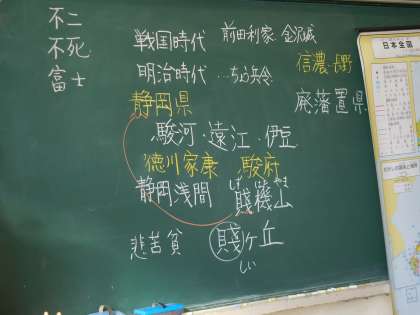 不二
不死
富士
戦国時代 前田利家 金沢城
信濃 長野
明治時代 …ちょう兵令
廃藩置県
静岡県
駿河・遠江・伊豆
徳川家康 駿府
静岡浅間 賤機山
悲苦貧 賤ヶ丘
日本全図